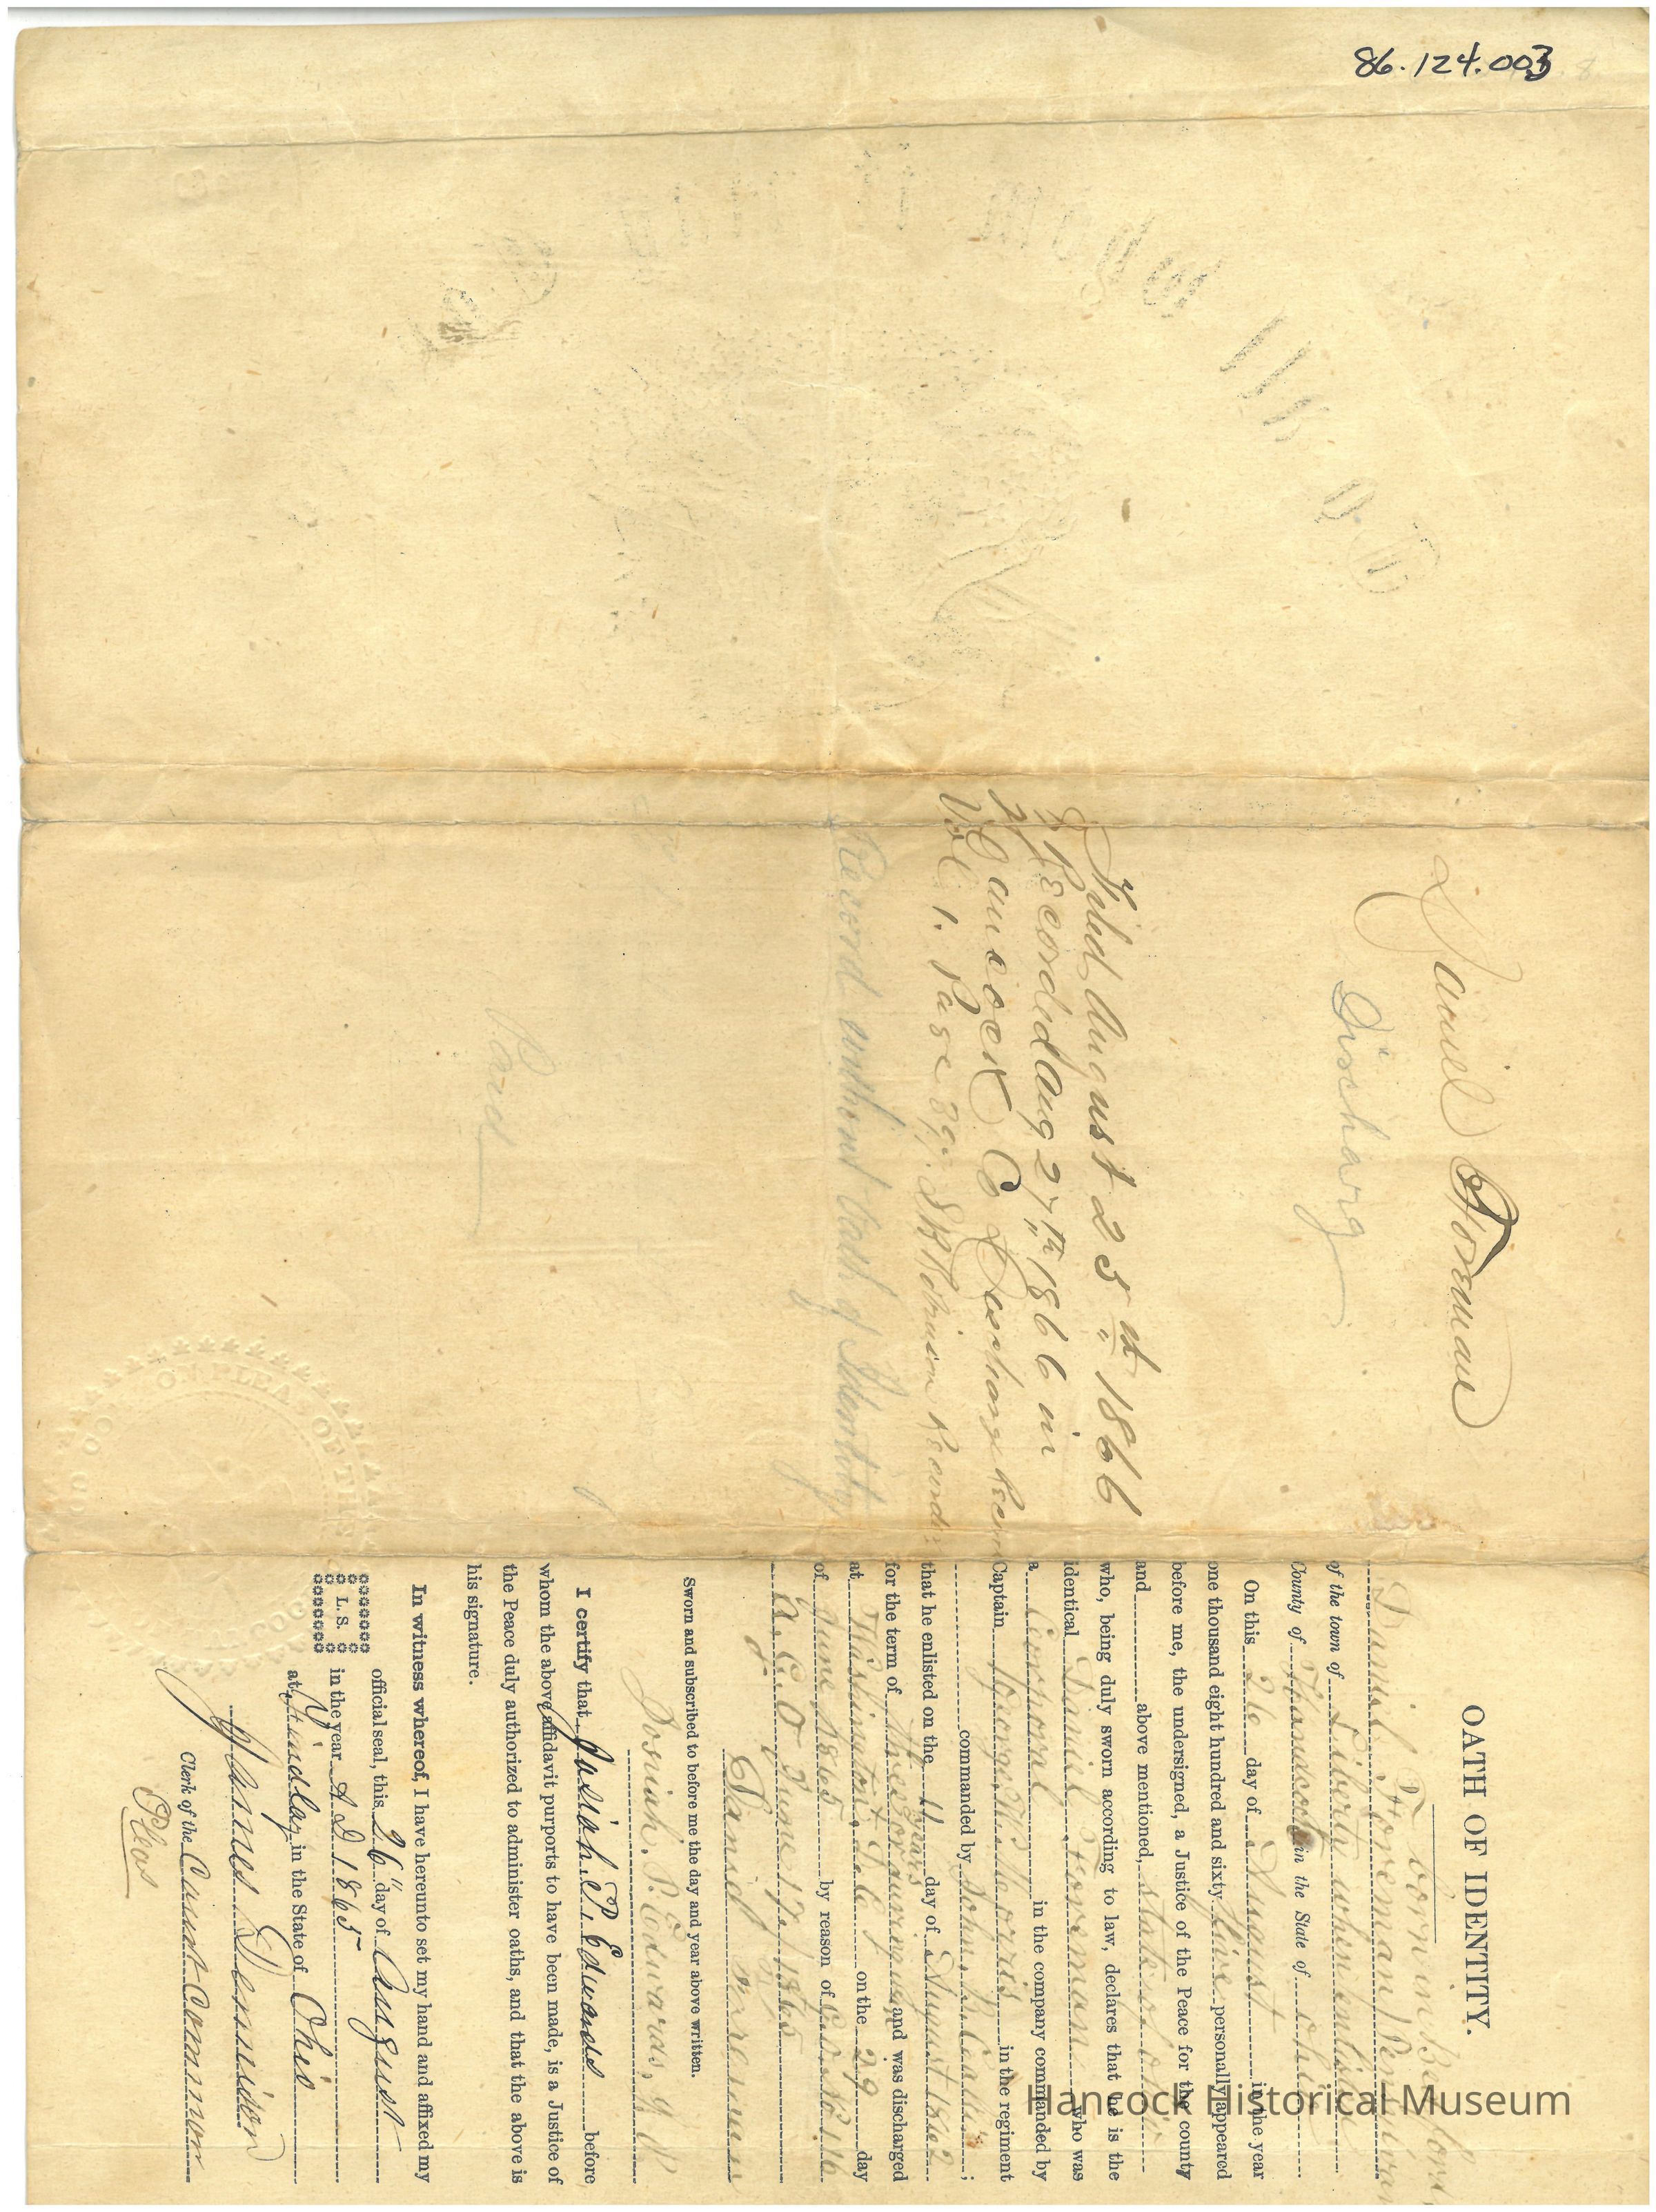 86.124.003
Daniel Foreman
Discharg
Filed August 25th 1866
& Recorded Aug 27th 1866 in
Hancock Co Discharge Recor
Vol. 1. Page 89. Recorder
Record without Oath of Identity
Paid
ON PLEAS OF THE
OATH OF IDENTITY.
born in Bedford
Daniel Foreman
of the town of Liberty when enlisted
County of Hancock in the State of Ohio
On this 26 day of August in the year
one thousand eight hundred and sixty five personally appeared
before me, the undersigned, a Justice of the Peace for the county
and above mentioned, State of Ohio
who, being duly sworn according to law, declares that he is the
identical Daniel Foreman who was
a Corporal in the company commanded by
Captain George W. Morris in the regiment
commanded by John ;
that he enlisted on the 11 day of August 1862
years
for the term of three or during war and was discharged
at Washington D.C. on the 29 day
of June 1865 by reason of
A. G. O June 17. 1865
Daniel Foreman
Sworn and subscribed to before me the day and year above written.
Josiah P. Edwards, J P
I certify that Josiah P. Edwards before
whom the above affidavit purports to have been made, is a Justice of
the Peace duly authorized to administer oaths, and that the above is
his signature.
In witness whereof, I have hereunto set my hand and affixed my
official seal, this 26" day of August
L. S. in the year A D 1865
at Findlay in the State of Ohio
James Dennison
Clerk of the Court Common
Pleas
Hancock Historical Museum